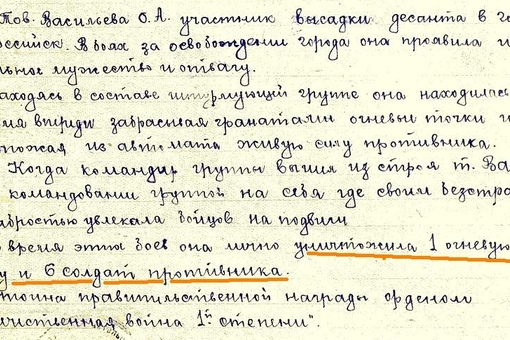 Тов. Васильева О.А. участник высадки десанта в го
оссийск. В боях за освобождении города она проявила и
льное мужество и отвагу.
аходясь в составе штурмующей группе она находилась
мя впереди забрасывая гранатами огневые точки и
тожая из автомата живую силу противника.
Когда командир группы вышел из строя т. Ва
командовании группой на себя где своим безстра
абростью увлекала бойцов на подвиги
время этты боев она лично уничтожила 1 огневую
у и 6 солдат противника.
тойна правительственной награды орденом
чественная война 1й степени".